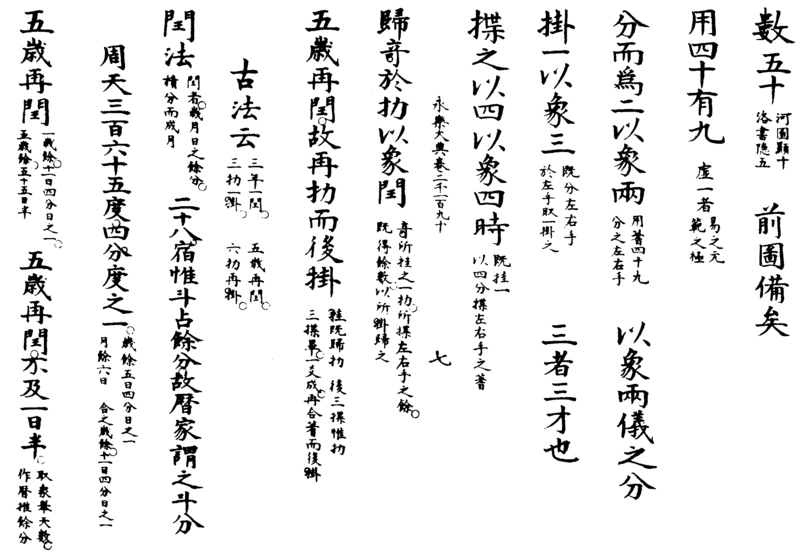 數五十 河圖顯十 洛書隱五 前圖備矣
用四十有九 虛一者易之元 範之極
分而爲二以象兩 用蓍四十九 分之左右手 以象兩儀之分
掛一以象三 既分左右手 於左手取一掛之 三者三才也
揲之以四以象四時 既挂一 以四分揲左右手之蓍
永樂大典卷二千一百九十 七
歸奇於扐以象閏 竒所挂之一扐所揲左右手之餘 既得餘數以所掛歸之
五歲再閏故再扐而後掛 挂既歸扐 後三揲惟扐 三揲畢一爻成再合蓍而後掛
古法云 三年一閏 三扐一掛 五歲再閏 六扐再掛
閏法 閏者歲月日之餘分 積分而成月 二十八宿惟斗占餘分故曆家謂之斗分
周天三百六十五度四分度之一 歲餘五日四分日之一 月餘六日 合之歲餘十一日四分日之一
五歲再閏 一歲餘十一日四分日之一 五歲餘五十五日半 五歲再閏不及一日半 取象舉天數 作曆推餘分